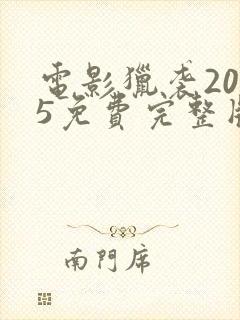 電影獵袭20
5免費完整版
南門席